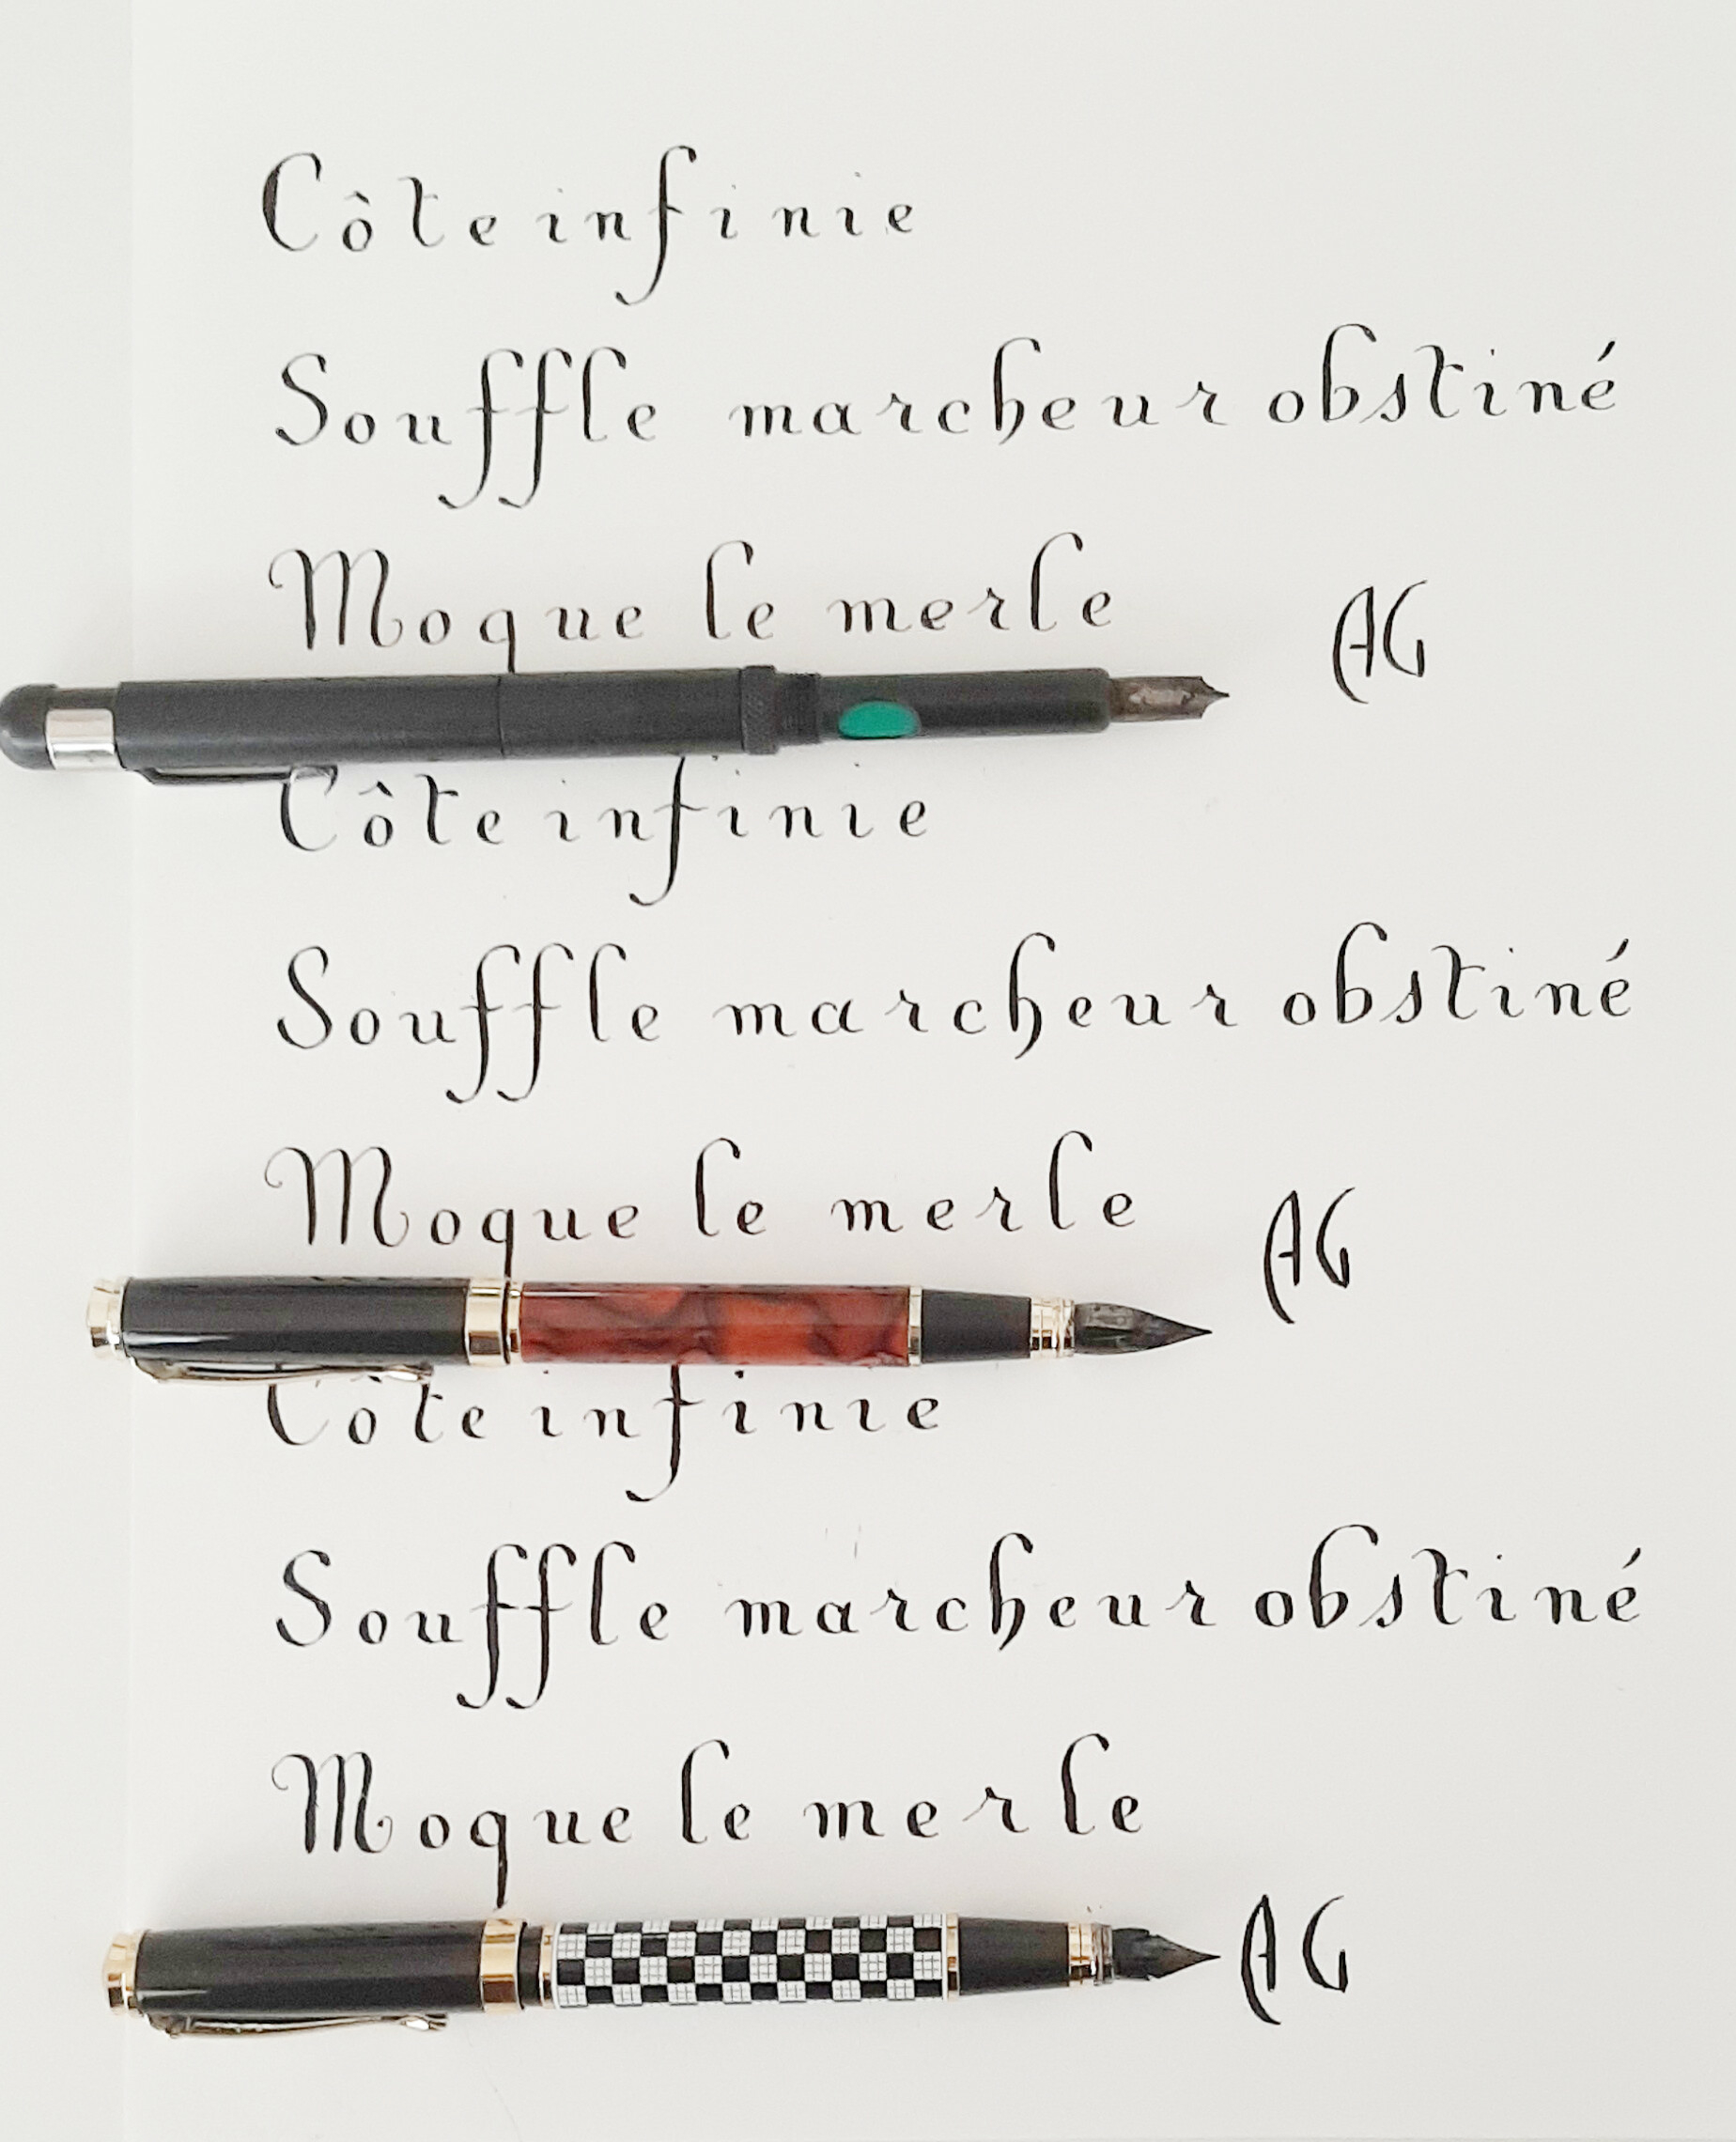 Côte infinie
Souffle marcheur obstiné
Moque le merle
AG
Côte infinie
Souffle marcheur obstiné
Moque le merle
AG
Côte infinie
Souffle marcheur obstiné
Moque le merle
AG